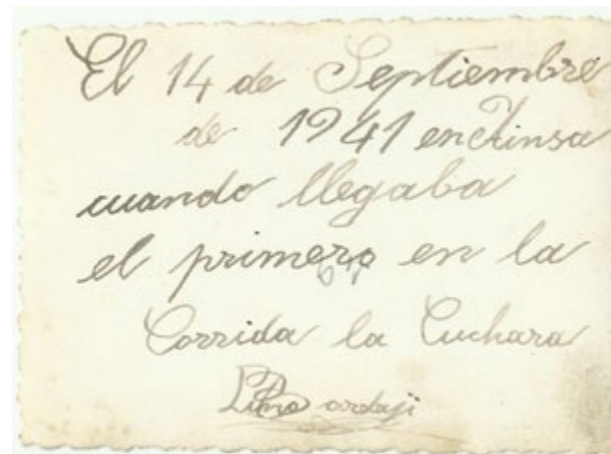 El 14 de Septiembre
de 1941 en Ainsa
cuando llegaba
el primero en la
Corrida la Cuchara